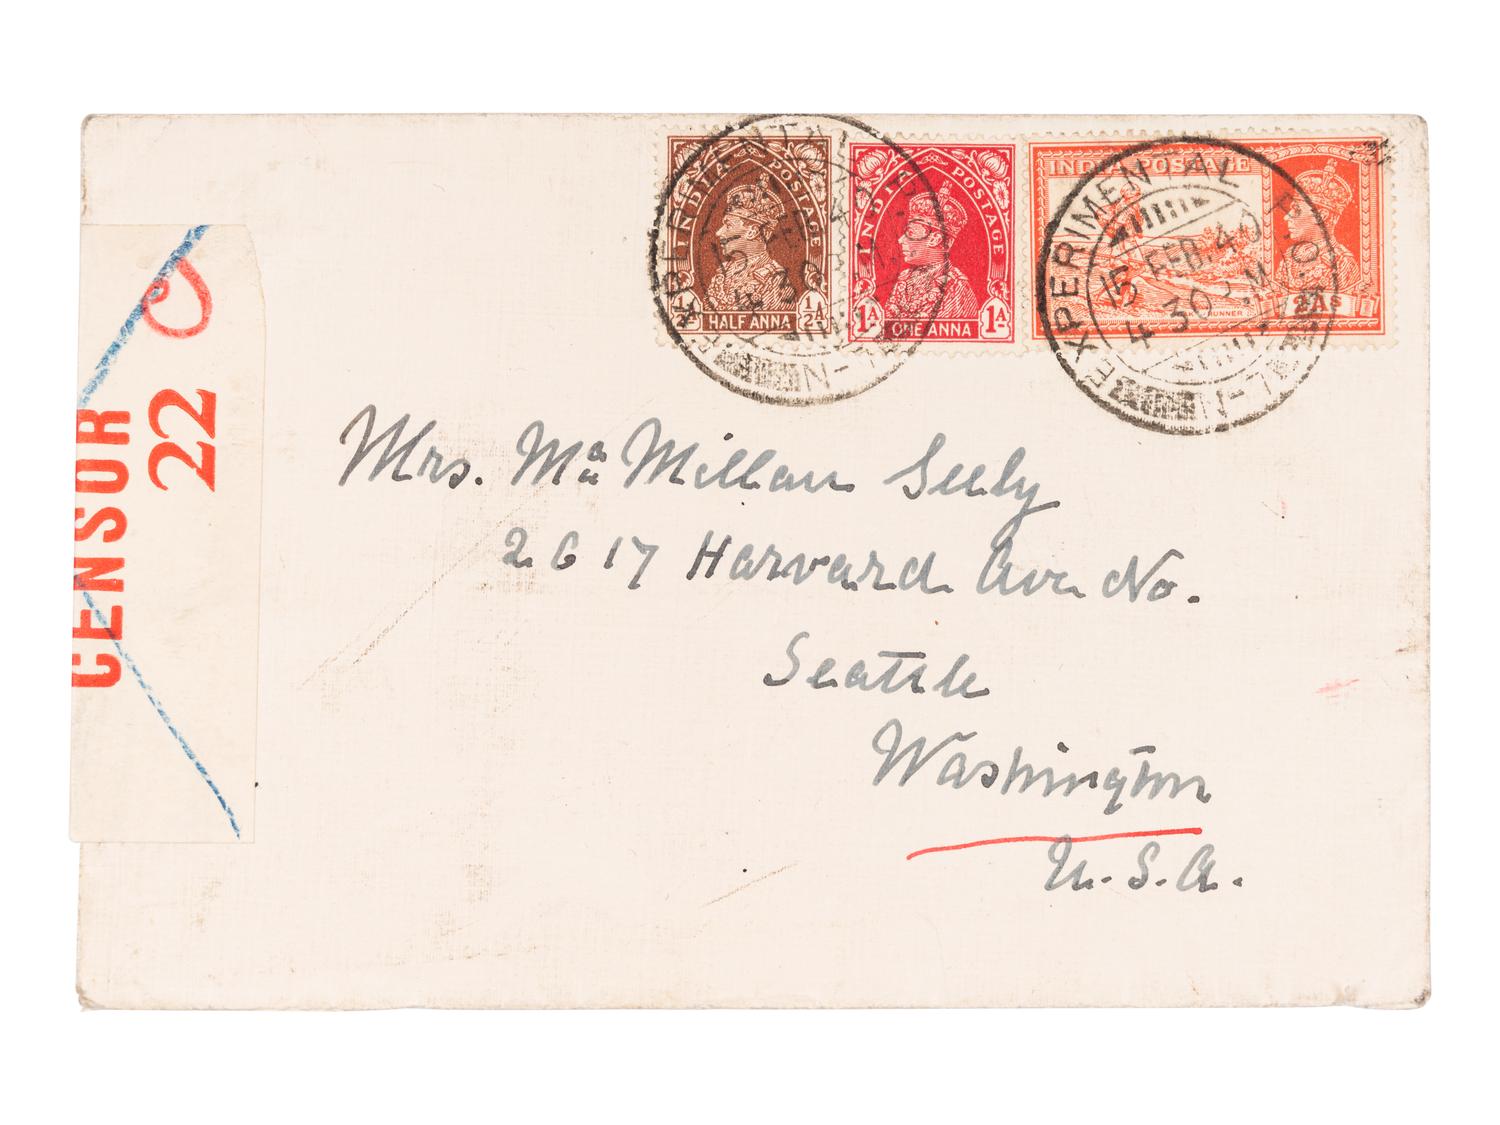 INDIA POSTAGE
½A HALF ANNA ½A
INDIA POSTAGE
1A ONE ANNA 1A
INDIA POSTAGE
RUNNER 2As
EXPERIMENTAL P.O.
15 FEB. 40
4 30 P.M
N-71
EXPERIMENTAL P.O.
15 FEB. 40
4 30 P.M
N-71
CENSOR
22
Mrs. Mc Millan Seely
2617 Harvard Ave No.
Seattle
Washington
U.S.A.